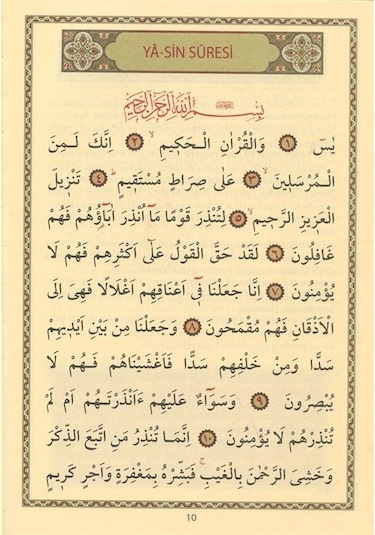 YÂ-SİN SÛRESİ
بِسْمِ اللّٰهِ الرَّحْمٰنِ الرَّحٖيمِ
يٰسٓ ﴿١﴾ وَالْقُرْاٰنِ الْحَكٖيمِۙ ﴿٢﴾ اِنَّكَ لَمِنَ
الْمُرْسَلٖينَۙ ﴿٣﴾ عَلٰى صِرَاطٍ مُسْتَقٖيمٍؕ ﴿٤﴾ تَنْزٖيلَ
الْعَزٖيزِ الرَّحٖيمِۙ ﴿٥﴾ لِتُنْذِرَ قَوْمًا مَٓا اُنْذِرَ اٰبَٓاؤُ۬هُمْ فَهُمْ
غَافِلُونَ ﴿٦﴾ لَقَدْ حَقَّ الْقَوْلُ عَلٰٓى اَكْثَرِهِمْ فَهُمْ لَا
يُؤْمِنُونَ ﴿٧﴾ اِنَّا جَعَلْنَا فٖٓى اَعْنَاقِهِمْ اَغْلَالًا فَهِىَ اِلَى
الْاَذْقَانِ فَهُمْ مُقْمَحُونَ ﴿٨﴾ وَجَعَلْنَا مِنْ بَيْنِ اَيْدٖيهِمْ
سَدًّا وَمِنْ خَلْفِهِمْ سَدًّا فَاَغْشَيْنَاهُمْ فَهُمْ لَا
يُبْصِرُونَ ﴿٩﴾ وَسَوَٓاءٌ عَلَيْهِمْ ءَاَنْذَرْتَهُمْ اَمْ لَمْ
تُنْذِرْهُمْ لَا يُؤْمِنُونَ ﴿١٠﴾ اِنَّمَا تُنْذِرُ مَنِ اتَّبَعَ الذِّكْرَ
وَخَشِىَ الرَّحْمٰنَ بِالْغَيْبِۚ فَبَشِّرْهُ بِمَغْفِرَةٍ وَاَجْرٍ كَرٖيمٍ
10